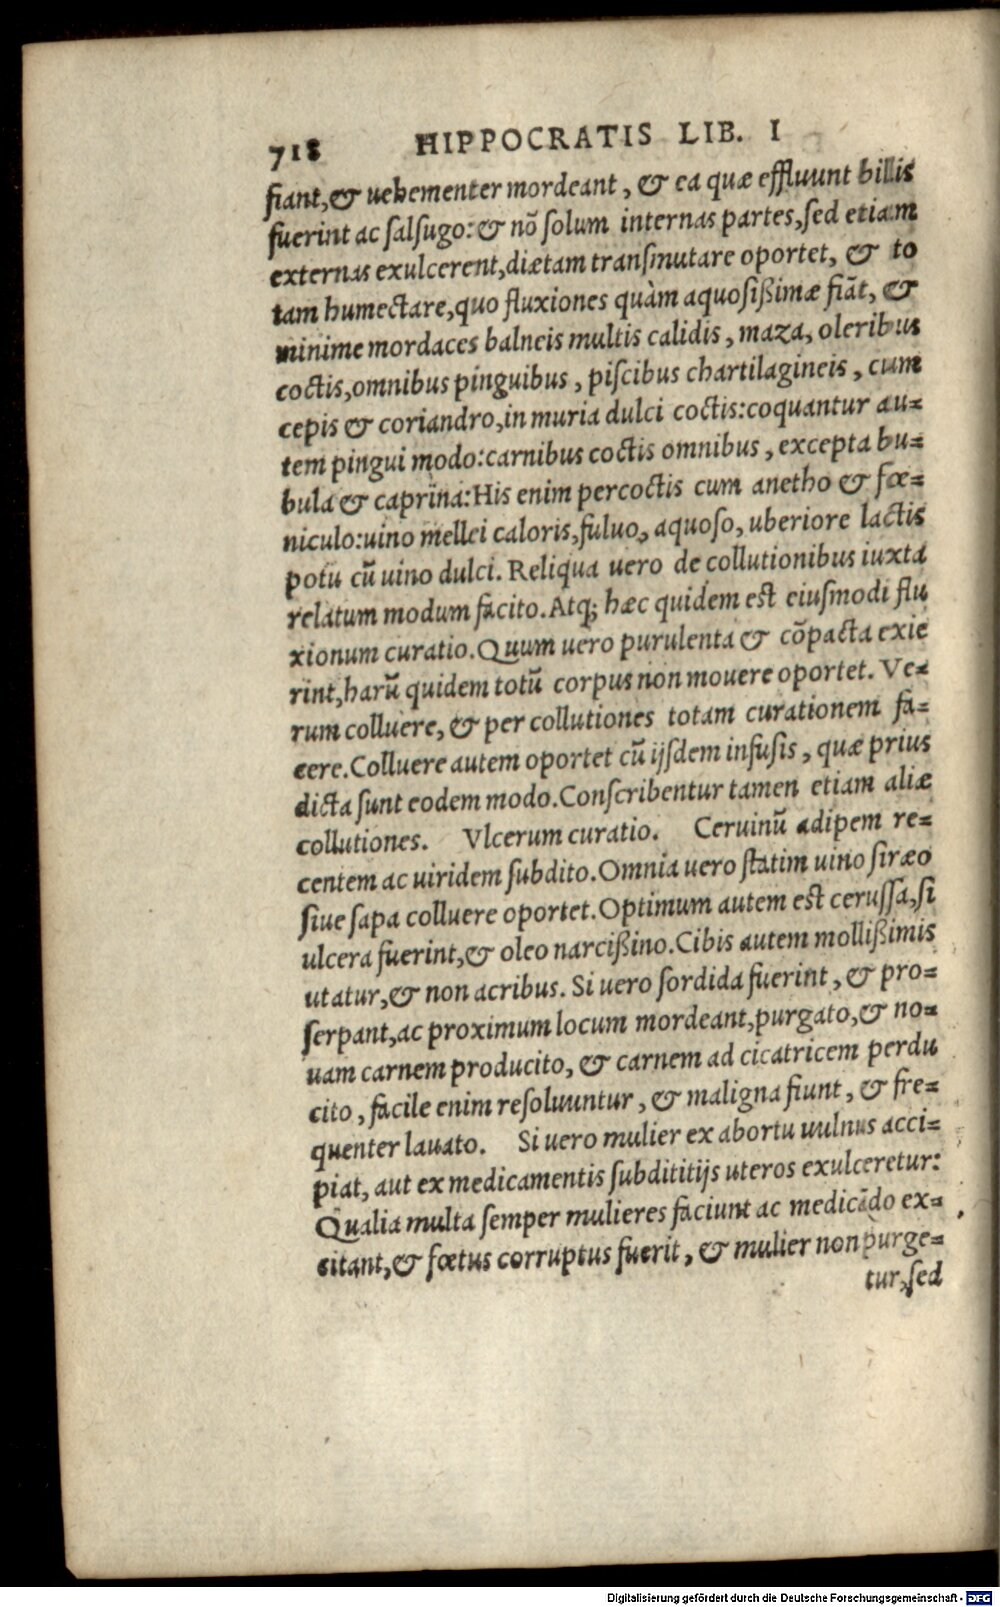 718 HIPPOCRATIS LIB. I
fiant,& uehementer mordeant, & ea quæ effluunt billis
fuerint ac salsugo:& nō solum internas partes,sed etiam
externas exulcerent,diætam transmutare oportet, & to
tam humectare,quo fluxiones quàm aquosißimæ fiāt, &
minime mordaces balneis multis calidis, maza, oleribus
coctis,omnibus pinguibus, piscibus chartilagineis, cum
cepis & coriandro,in muria dulci coctis:coquantur au=
tem pingui modo:carnibus coctis omnibus, excepta bu=
bula & caprina:His enim percoctis cum anetho & fœ=
niculo:uino mellei caloris,fuluo, aquoso, uberiore lactis
potu cū uino dulci. Reliqua uero de collutionibus iuxta
relatum modum facito. Atq; hæc quidem est eiusmodi flu
xionum curatio. Quum uero purulenta & cōpacta exie
rint,harū quidem totū corpus non mouere oportet. Ve=
rum colluere, & per collutiones totam curationem fa=
cere. Colluere autem oportet cū ijsdem infusis, quæ prius
dicta sunt eodem modo. Conscribentur tamen etiam aliæ
collutiones. Vlcerum curatio. Ceruinū adipem re=
centem ac uiridem subdito. Omnia uero statim uino siræo
siue sapa colluere oportet. Optimum autem est cerussa,si
ulcera fuerint,& oleo narcißino. Cibis autem mollißimis
utatur,& non acribus. Si uero sordida fuerint, & pro=
serpant,ac proximum locum mordeant,purgato,& no=
uam carnem producito, & carnem ad cicatricem perdu
cito, facile enim resoluuntur, & maligna fiunt, & fre=
quenter lauato. Si uero mulier ex abortu uulnus acci=
piat, aut ex medicamentis subdititijs uteros exulceretur:
Qualia multa semper mulieres faciunt ac medicādo ex=
citant,& fœtus corruptus fuerit, & mulier non purge=
tur,sed
Digitalisierung gefördert durch die Deutsche Forschungsgemeinschaft - DFG